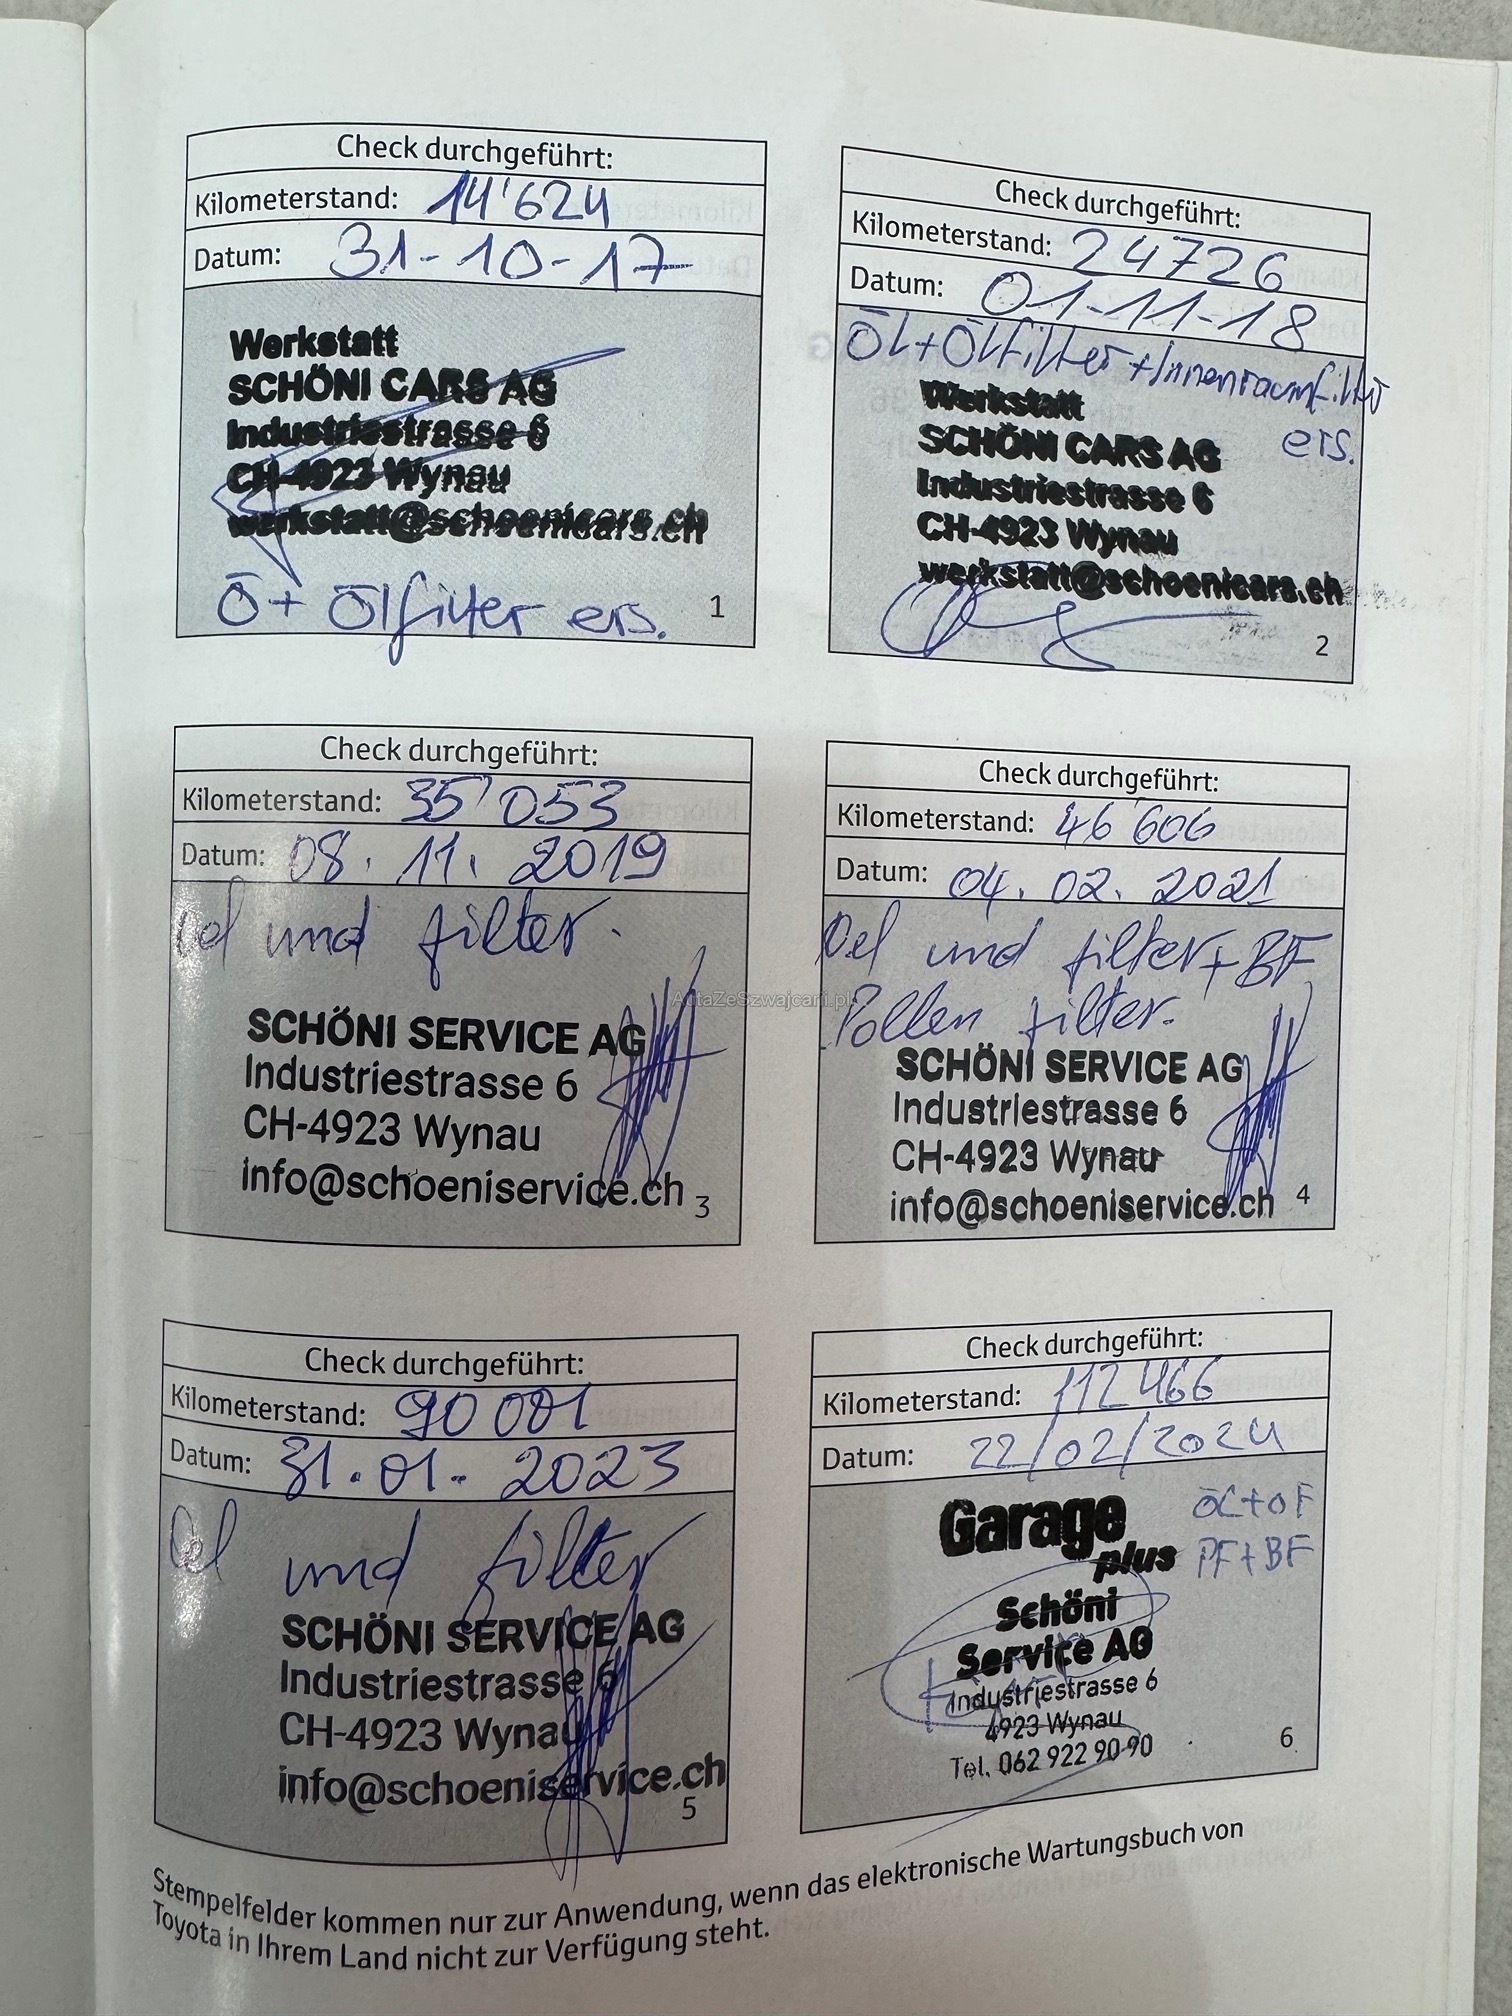 Check durchgeführt:
Kilometerstand: 14'624
Datum: 31-10-17
Werkstatt
SCHÖNI CARS AG
Industriestrasse 6
CH-4923 Wynau
werkstatt@schoenicars.ch
Ö + Ölfilter ers.
1
Check durchgeführt:
Kilometerstand: 24726
Datum: 01-11-18
Öl + Ölfilter + Innenraumfilter
ers.
Werkstatt
SCHÖNI CARS AG
Industriestrasse 6
CH-4923 Wynau
werkstatt@schoenicars.ch
2
Check durchgeführt:
Kilometerstand: 35'053
Datum: 08. 11. 2019
Oel und filter.
SCHÖNI SERVICE AG
Industriestrasse 6
CH-4923 Wynau
info@schoeniservice.ch
3
AutaZeSzwajcarii.pl
Check durchgeführt:
Kilometerstand: 46 606
Datum: 04. 02. 2021
Oel und filter + BF
Pollen filter.
SCHÖNI SERVICE AG
Industriestrasse 6
CH-4923 Wynau
info@schoeniservice.ch
4
Check durchgeführt:
Kilometerstand: 90 001
Datum: 31. 01. 2023
Oel und filter
SCHÖNI SERVICE AG
Industriestrasse 6
CH-4923 Wynau
info@schoeniservice.ch
5
Check durchgeführt:
Kilometerstand: 112 466
Datum: 22/02/2024
ÖL + OF
PF + BF
Garage
plus
Schöni
Service AG
Industriestrasse 6
4923 Wynau
Tel. 062 922 90 90
6
Stempelfelder kommen nur zur Anwendung, wenn das elektronische Wartungsbuch von
Toyota in Ihrem Land nicht zur Verfügung steht.